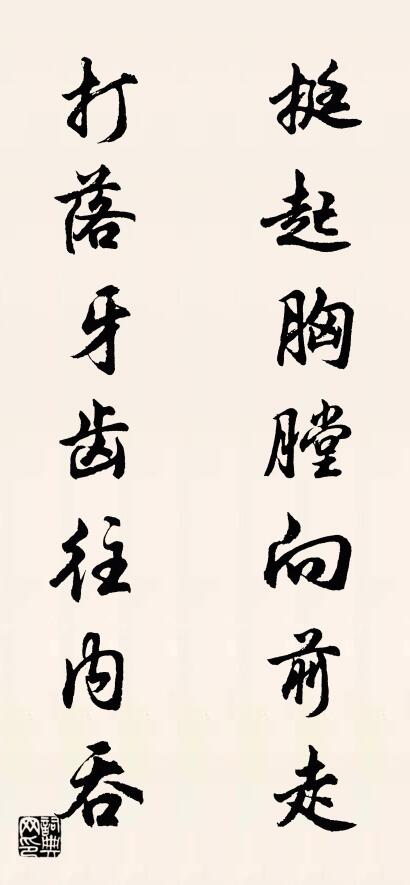 挺起胸膛向前走
打落牙齿往内吞
詞典网印